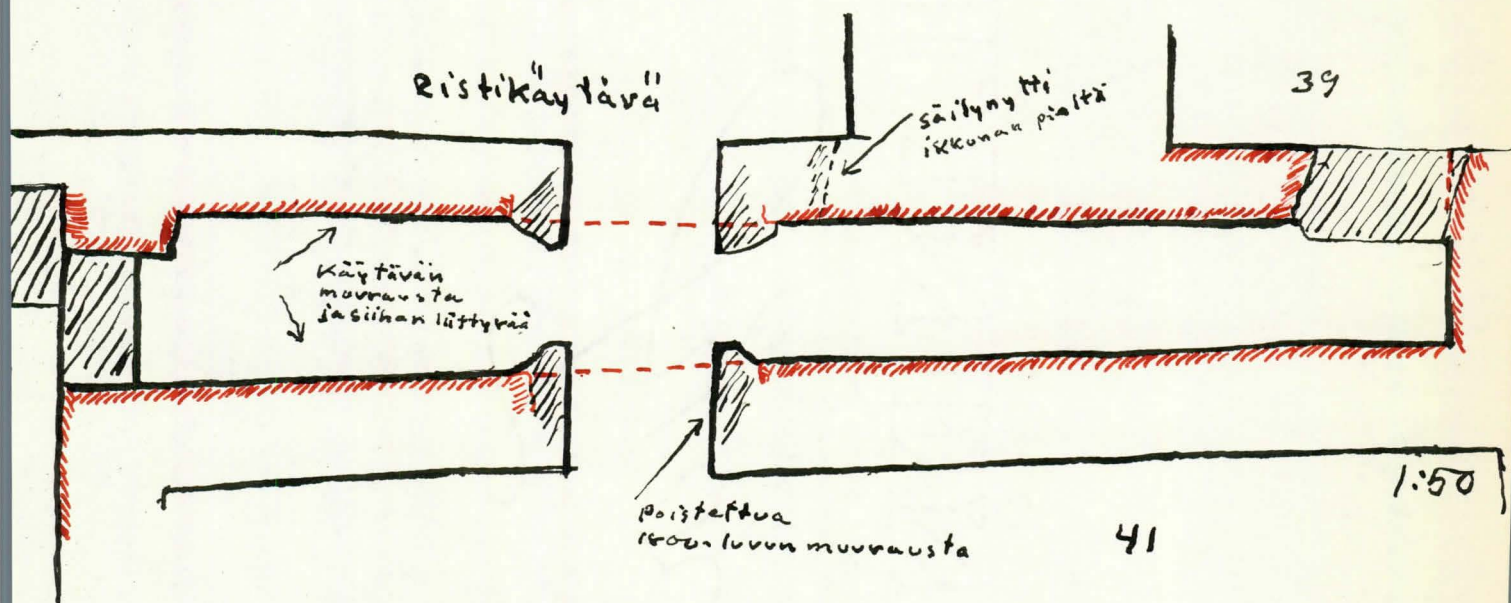 Ristikäytävä
39
säilynyttä
ikkunan pieltä
käytävän
muurausta
ja siihen liittyvää
1:50
poistettua
1800-luvun muurausta
41